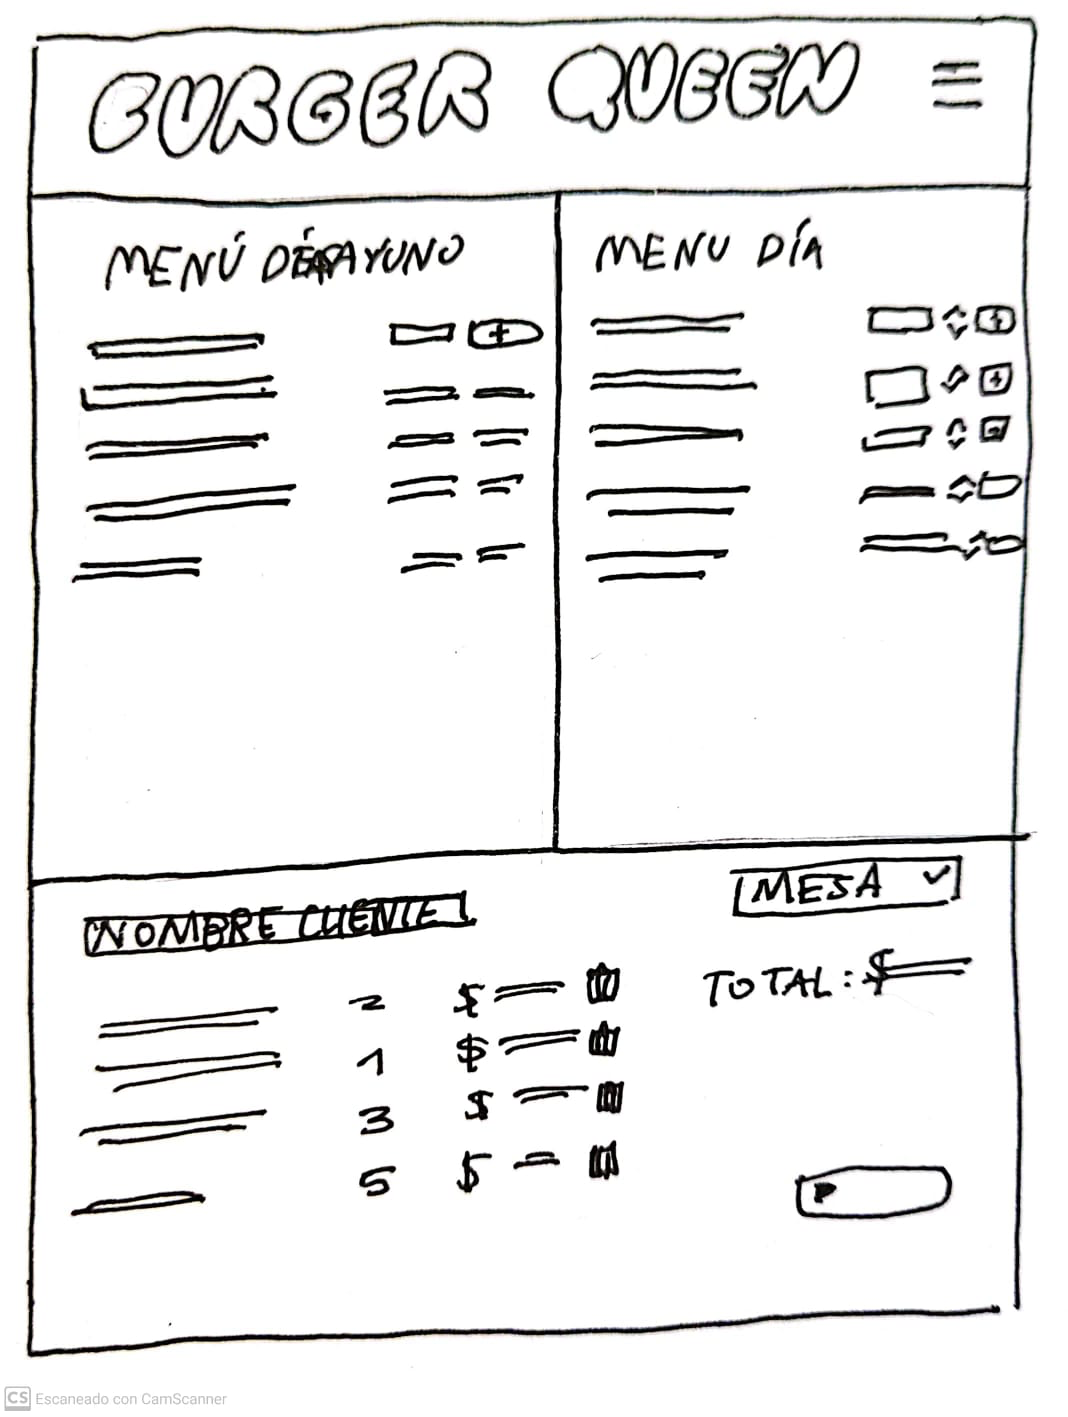 BURGER QUEEN
MENÚ DESAYUNO
MENU DÍA
+
+
+
NOMBRE CLIENTE
MESA
2 $
1 $
3 $
5 $
TOTAL: $
CS Escaneado con CamScanner